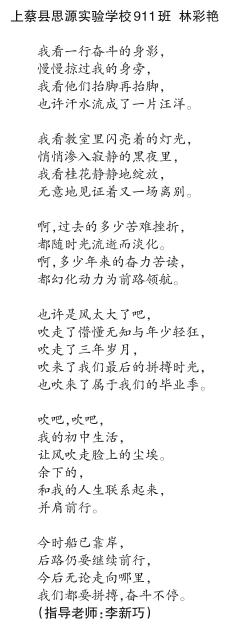 上蔡县思源实验学校911班 林彩艳
我看一行奋斗的身影，
慢慢掠过我的身旁，
我看他们抬脚再抬脚，
也许汗水流成了一片汪洋。
我看教室里闪亮着的灯光，
悄悄渗入寂静的黑夜里，
我看桂花静静地绽放，
无意地见证着又一场离别。
啊，过去的多少苦难挫折，
都随时光流逝而淡化。
啊，多少年来的奋力苦读，
都幻化动力为前路领航。
也许是风太大了吧，
吹走了懵懂无知与年少轻狂，
吹走了三年岁月，
吹来了我们最后的拼搏时光，
也吹来了属于我们的毕业季。
吹吧，吹吧，
我的初中生活，
让风吹走脸上的尘埃。
余下的，
和我的人生联系起来，
并肩前行。
今时船已靠岸，
后路仍要继续前行，
今后无论走向哪里，
我们都要拼搏，奋斗不停。
（指导老师：李新巧）